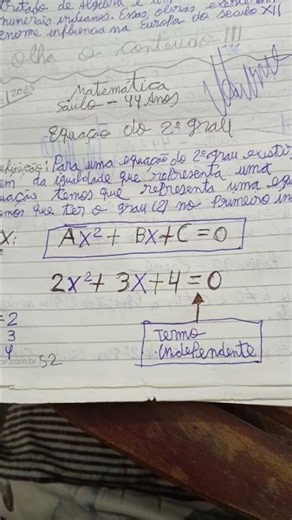 tratado de Álgebra e
numerais indianos. Essas obras
enorme influência na Europa do século XII
olha o conteúdo !!!
/2025
Matemática
Saulo - 44 Anos
Equação do 2º grau
definição: Para uma equação do 2º grau existir
em da igualdade que representa uma
uação temos que representa uma equ
emos que ter o grau (2) no primeiro
X:
AX² + BX + C = 0
2X² + 3X + 4 = 0
= 2
3
4
52
termo
independente